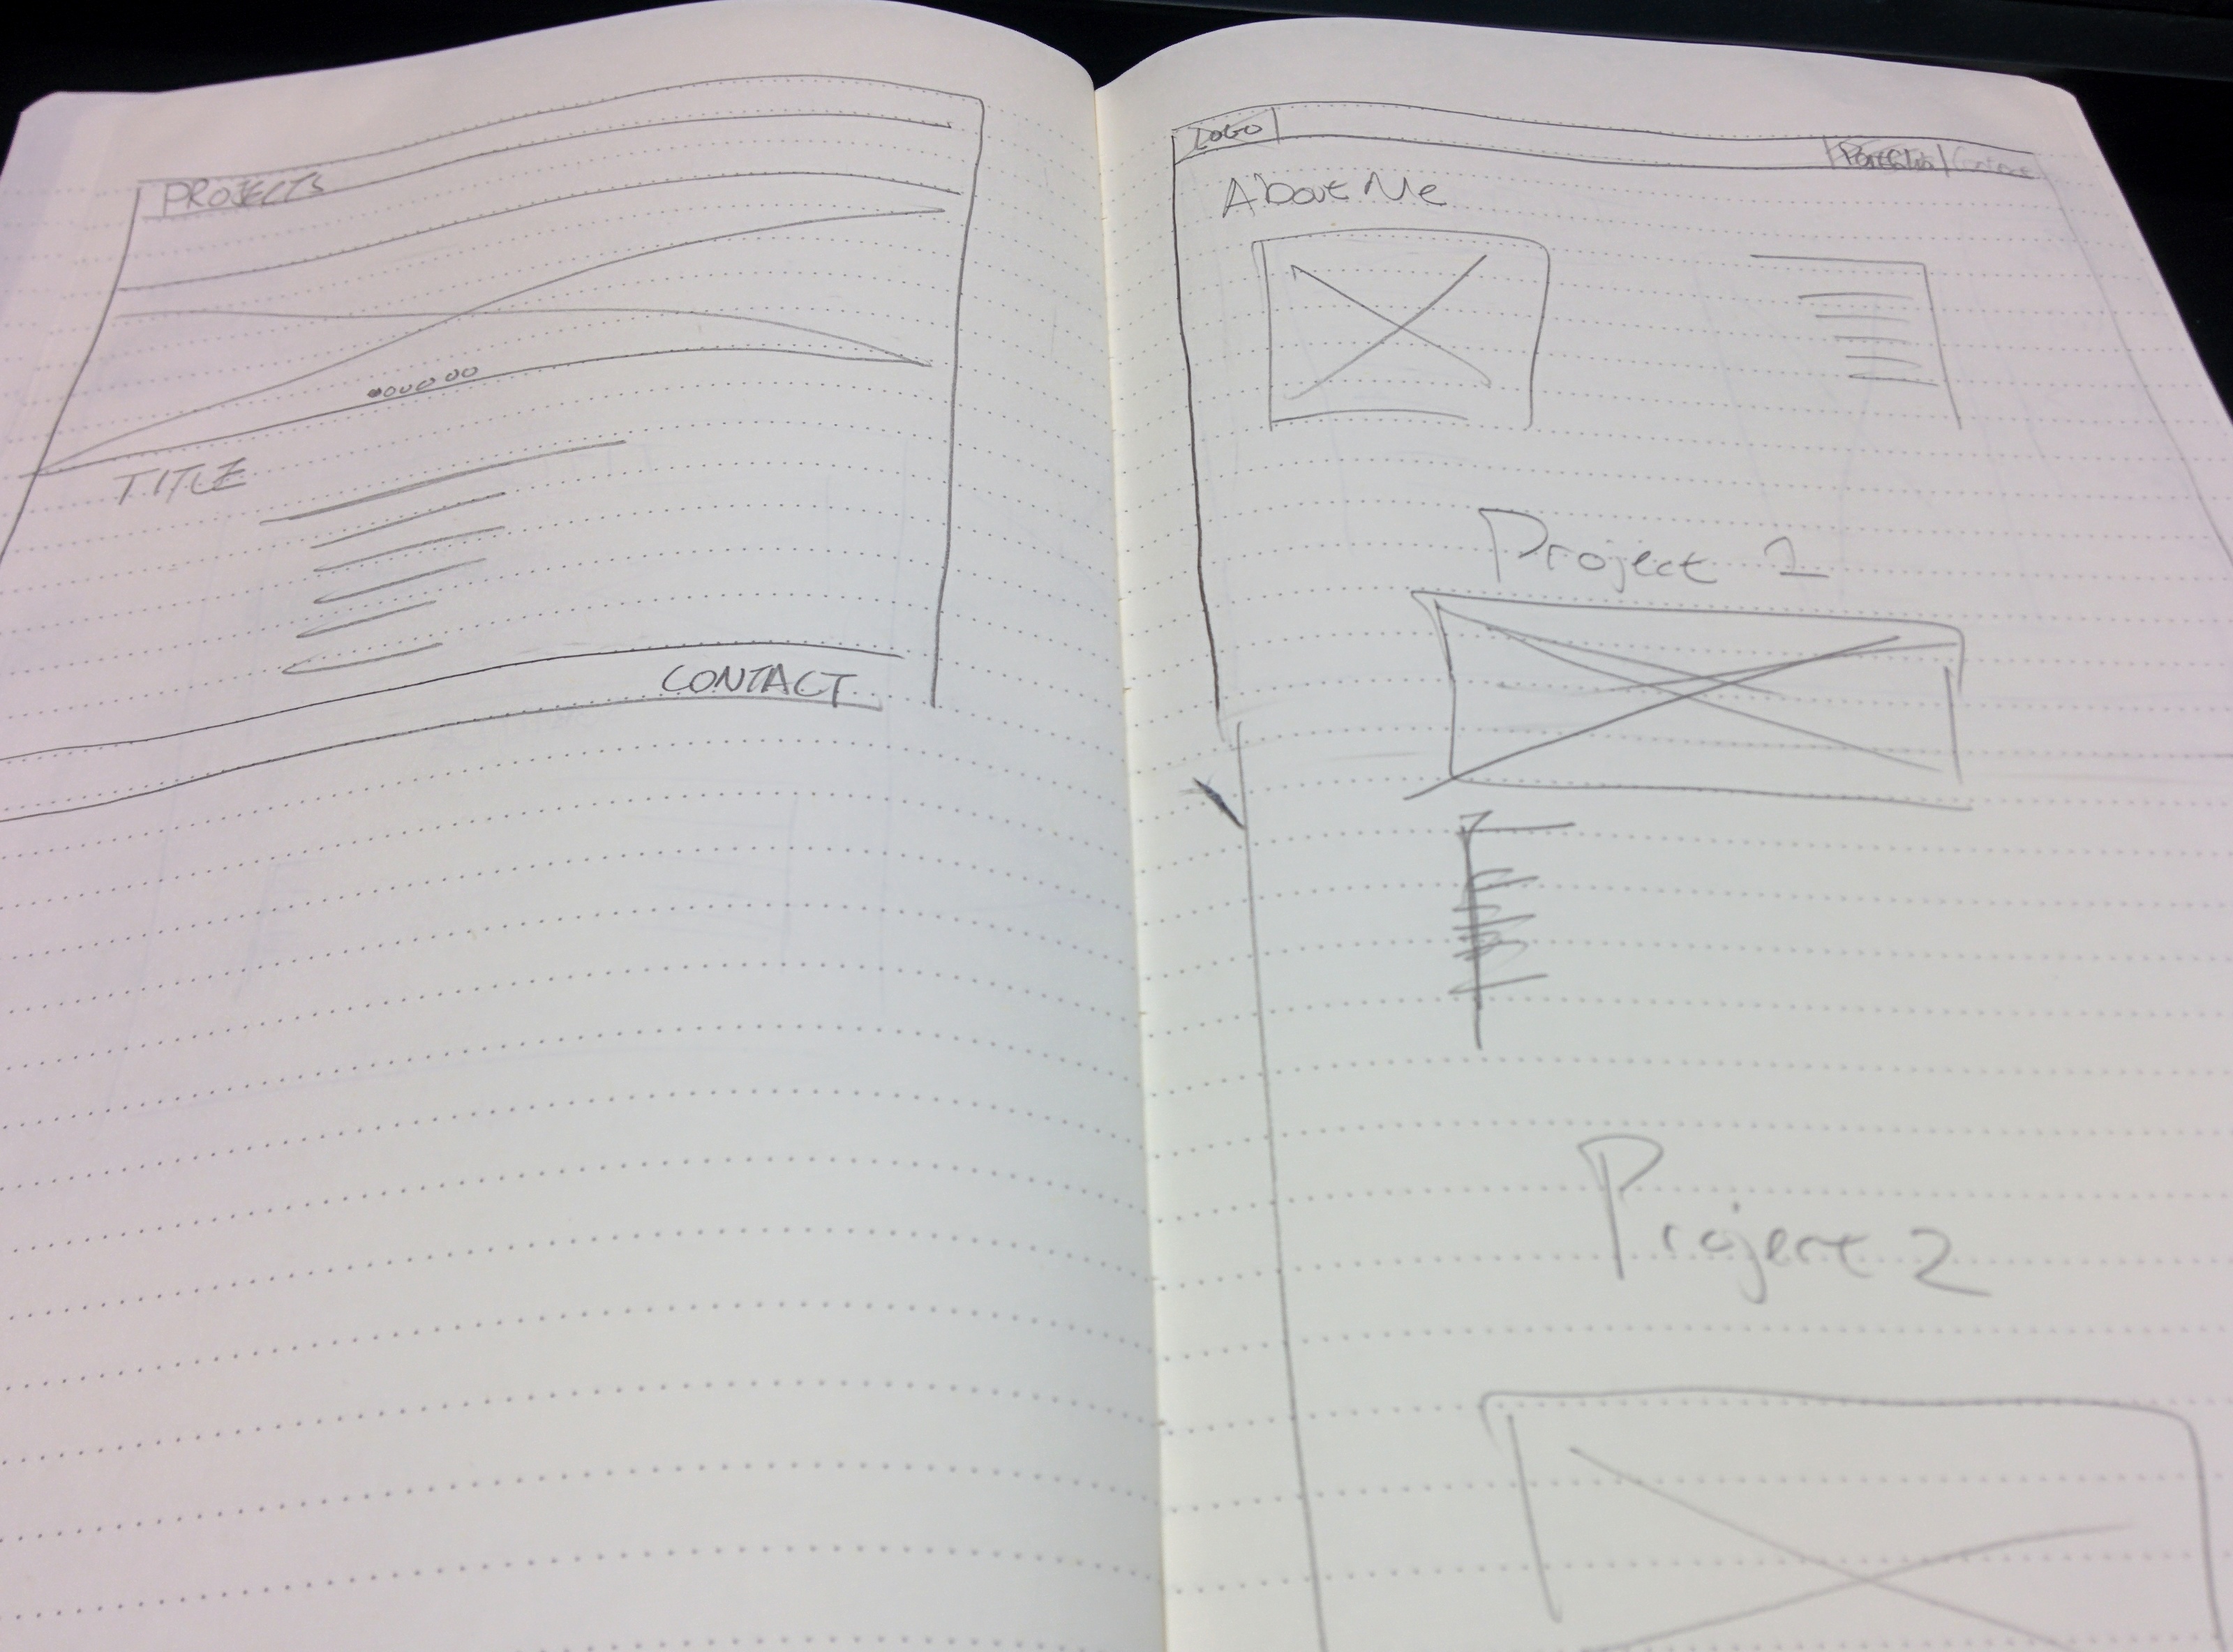 PROJECTS
TITLE
CONTACT
LOGO
Portfolio Contact
About Me
Project 1
Project 2